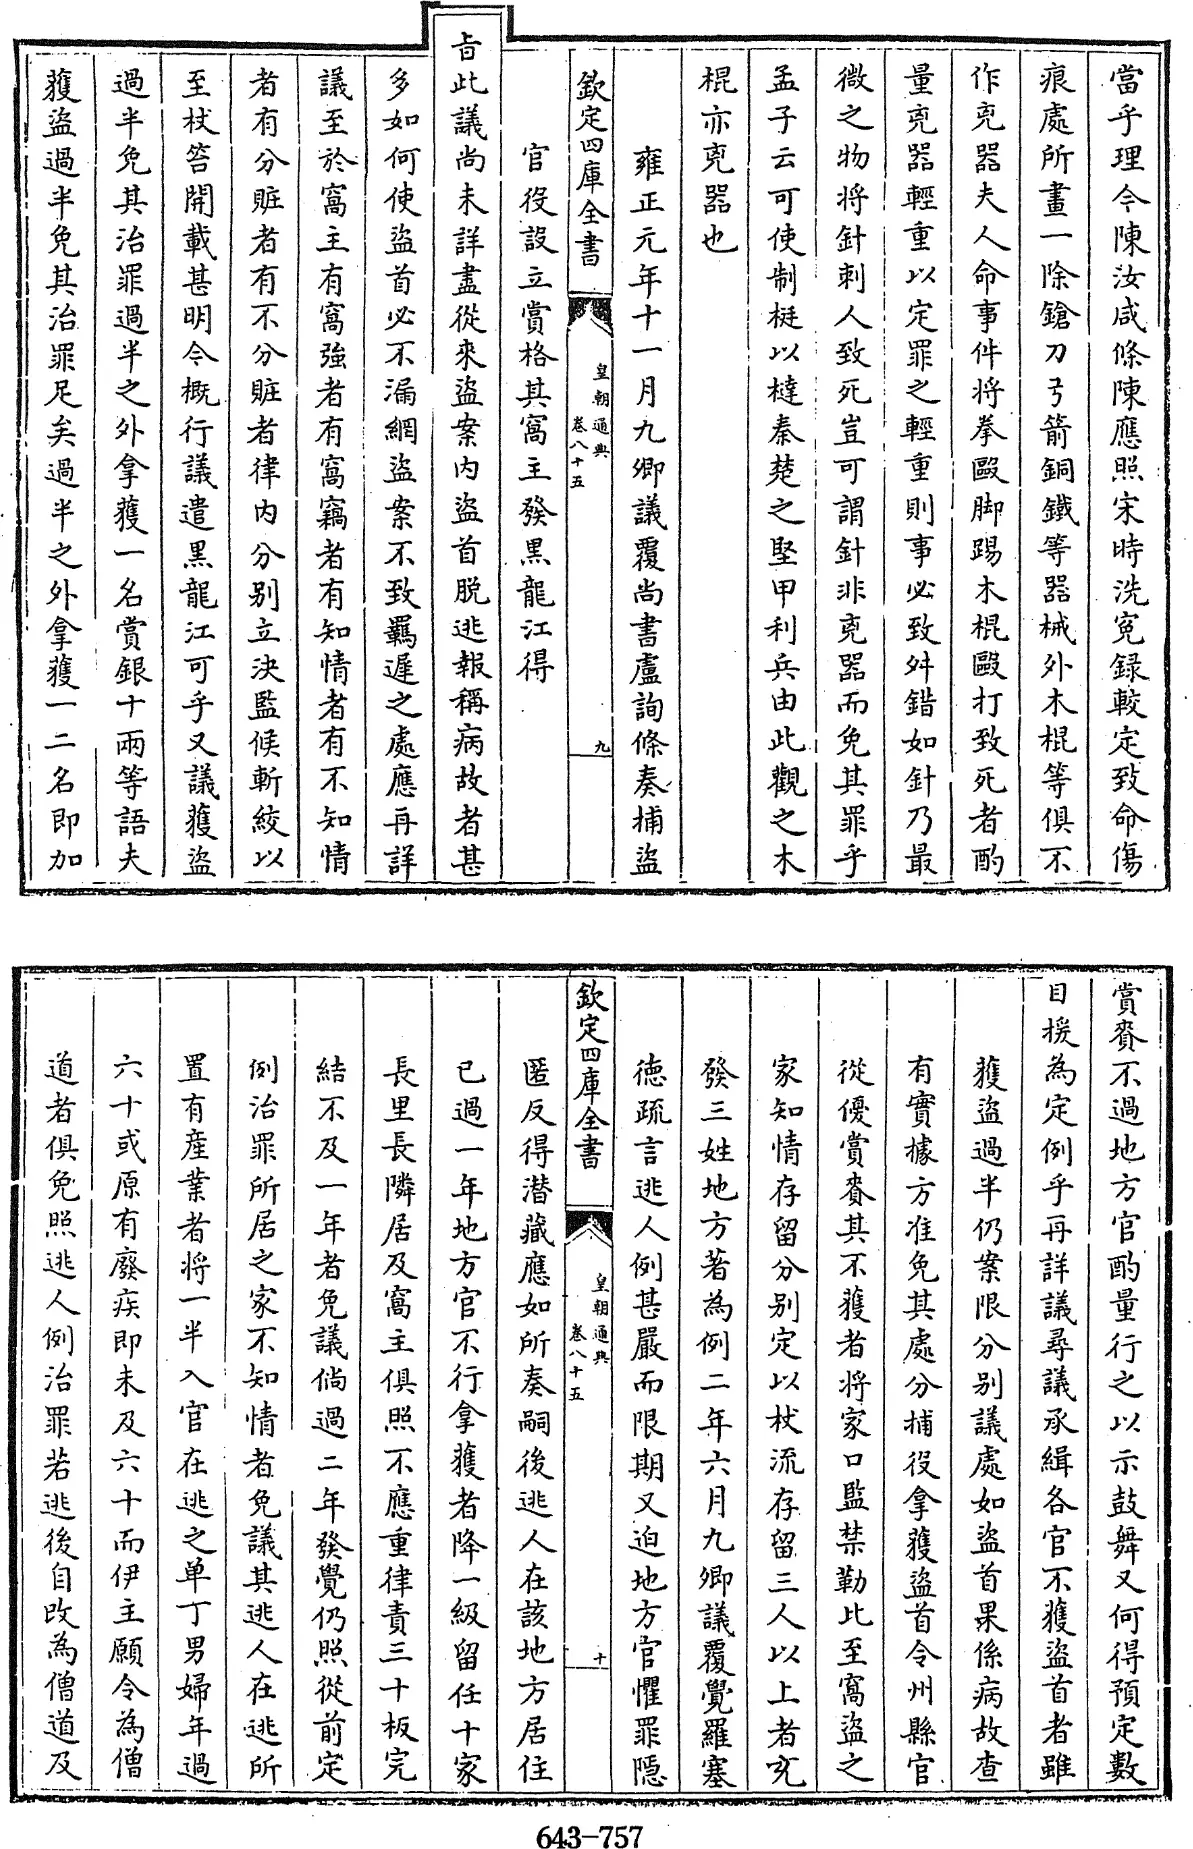 當乎理今陳汝咸條陳應照宋時洗冤録較定致命傷
痕處所畫一除鎗刀弓箭銅鐵等器械外木棍等俱不
作兇器夫人命事件将拳毆脚踢木棍毆打致死者酌
量兇器輕重以定罪之輕重則事必致舛錯如針乃最
微之物将針刺人致死豈可謂針非兇器而免其罪乎
孟子云可使制梃以撻秦楚之堅甲利兵由此觀之木
棍亦兇器也
雍正元年十一月九卿議覆尚書盧詢條奏捕盜
欽定四庫全書
皇朝通典
卷八十五
九
官役設立賞格其窩主發黑龍江得
㫖此議尚未詳盡從來盜案内盜首脱逃報稱病故者甚
多如何使盜首必不漏網盜案不致羈遲之處應再詳
議至於窩主有窩強者有窩竊者有知情者有不知情
者有分賍者有不分賍者律内分别立決監候斬絞以
至杖笞開載甚明今概行議遣黑龍江可乎又議獲盜
過半免其治罪過半之外拿獲一名賞銀十兩等語夫
獲盜過半免其治罪足矣過半之外拿獲一二名即加
賞賚不過地方官酌量行之以示鼓舞又何得預定數
目援為定例乎再詳議尋議承緝各官不獲盜首者雖
獲盜過半仍案限分别議處如盜首果係病故查
有實據方准免其處分捕役拿獲盜首令州縣官
從優賞賚其不獲者将家口監禁勒比至窩盜之
家知情存留分别定以杖流存留三人以上者充
發三姓地方著為例二年六月九卿議覆覺羅塞
德疏言逃人例甚嚴而限期又迫地方官懼罪隱
欽定四庫全書
皇朝通典
卷八十五
十
匿反得潛藏應如所奏嗣後逃人在該地方居住
已過一年地方官不行拿獲者降一級留任十家
長里長隣居及窩主俱照不應重律責三十板完
結不及一年者免議倘過二年發覺仍照從前定
例治罪所居之家不知情者免議其逃人在逃所
置有產業者将一半入官在逃之单丁男婦年過
六十或原有廢疾即未及六十而伊主願令為僧
道者俱免照逃人例治罪若逃後自改為僧道及
643-757